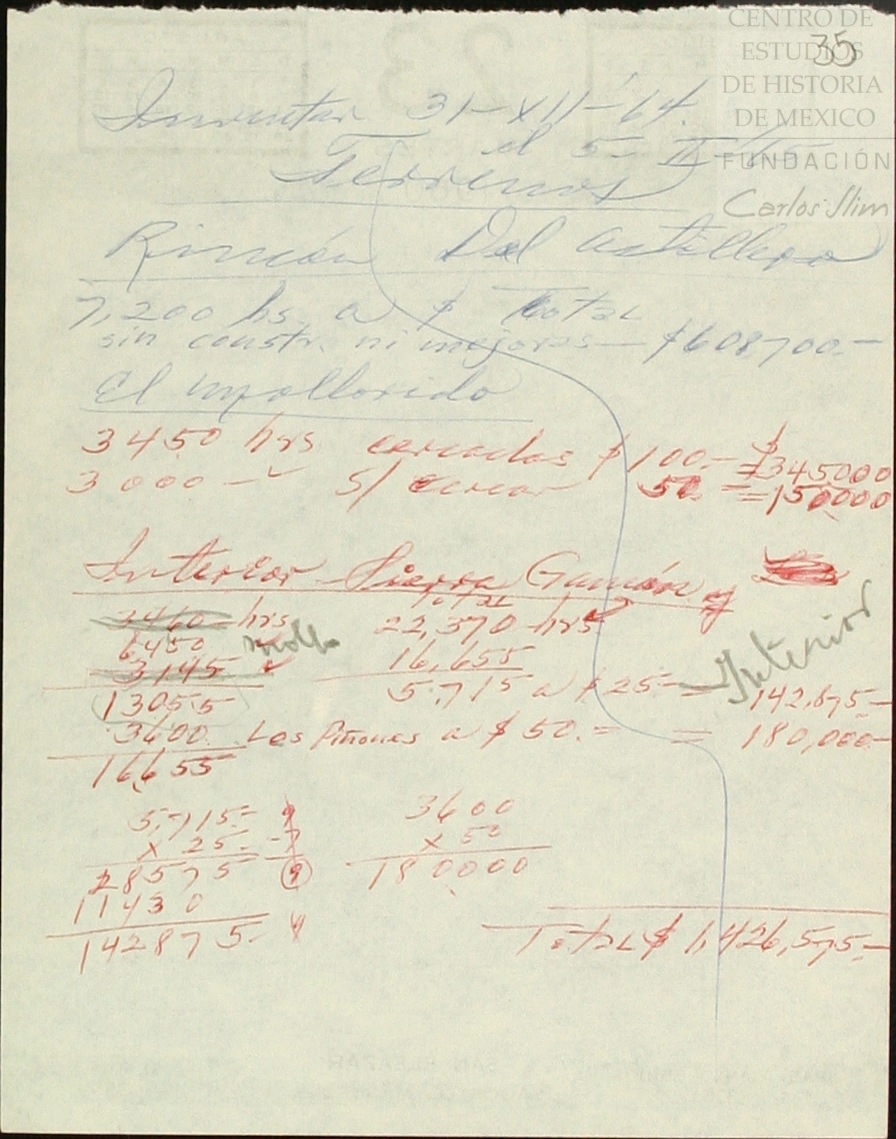 CENTRO DE
ESTUDIOS
DE HISTORIA
DE MEXICO
FUNDACIÓN
Carlos Slim
35
Inventar 31-XII-64.
el 5- II-65
Terrenos
Rincón Del Astillero
7,200 hs. a $ Total
sin constr. ni mejoras — $608,700.-
El Mallorido
3450 hrs cercados $100.- = $345000
3000 - " S/ cercar 50. = 150000
Interior Sierra Gamón y
3460 hrs Total 22,370 hrs
6450
3145 16,655
13055 5,715 a $25.- = Interior 142,875.-
3600 Los Piñones a $50.= = 180,000.-
16655
5,715.- 9 3600
x 25.- -7 x 50
28575 9 180000
11430
142875.- 9 Total $1,426,575.-